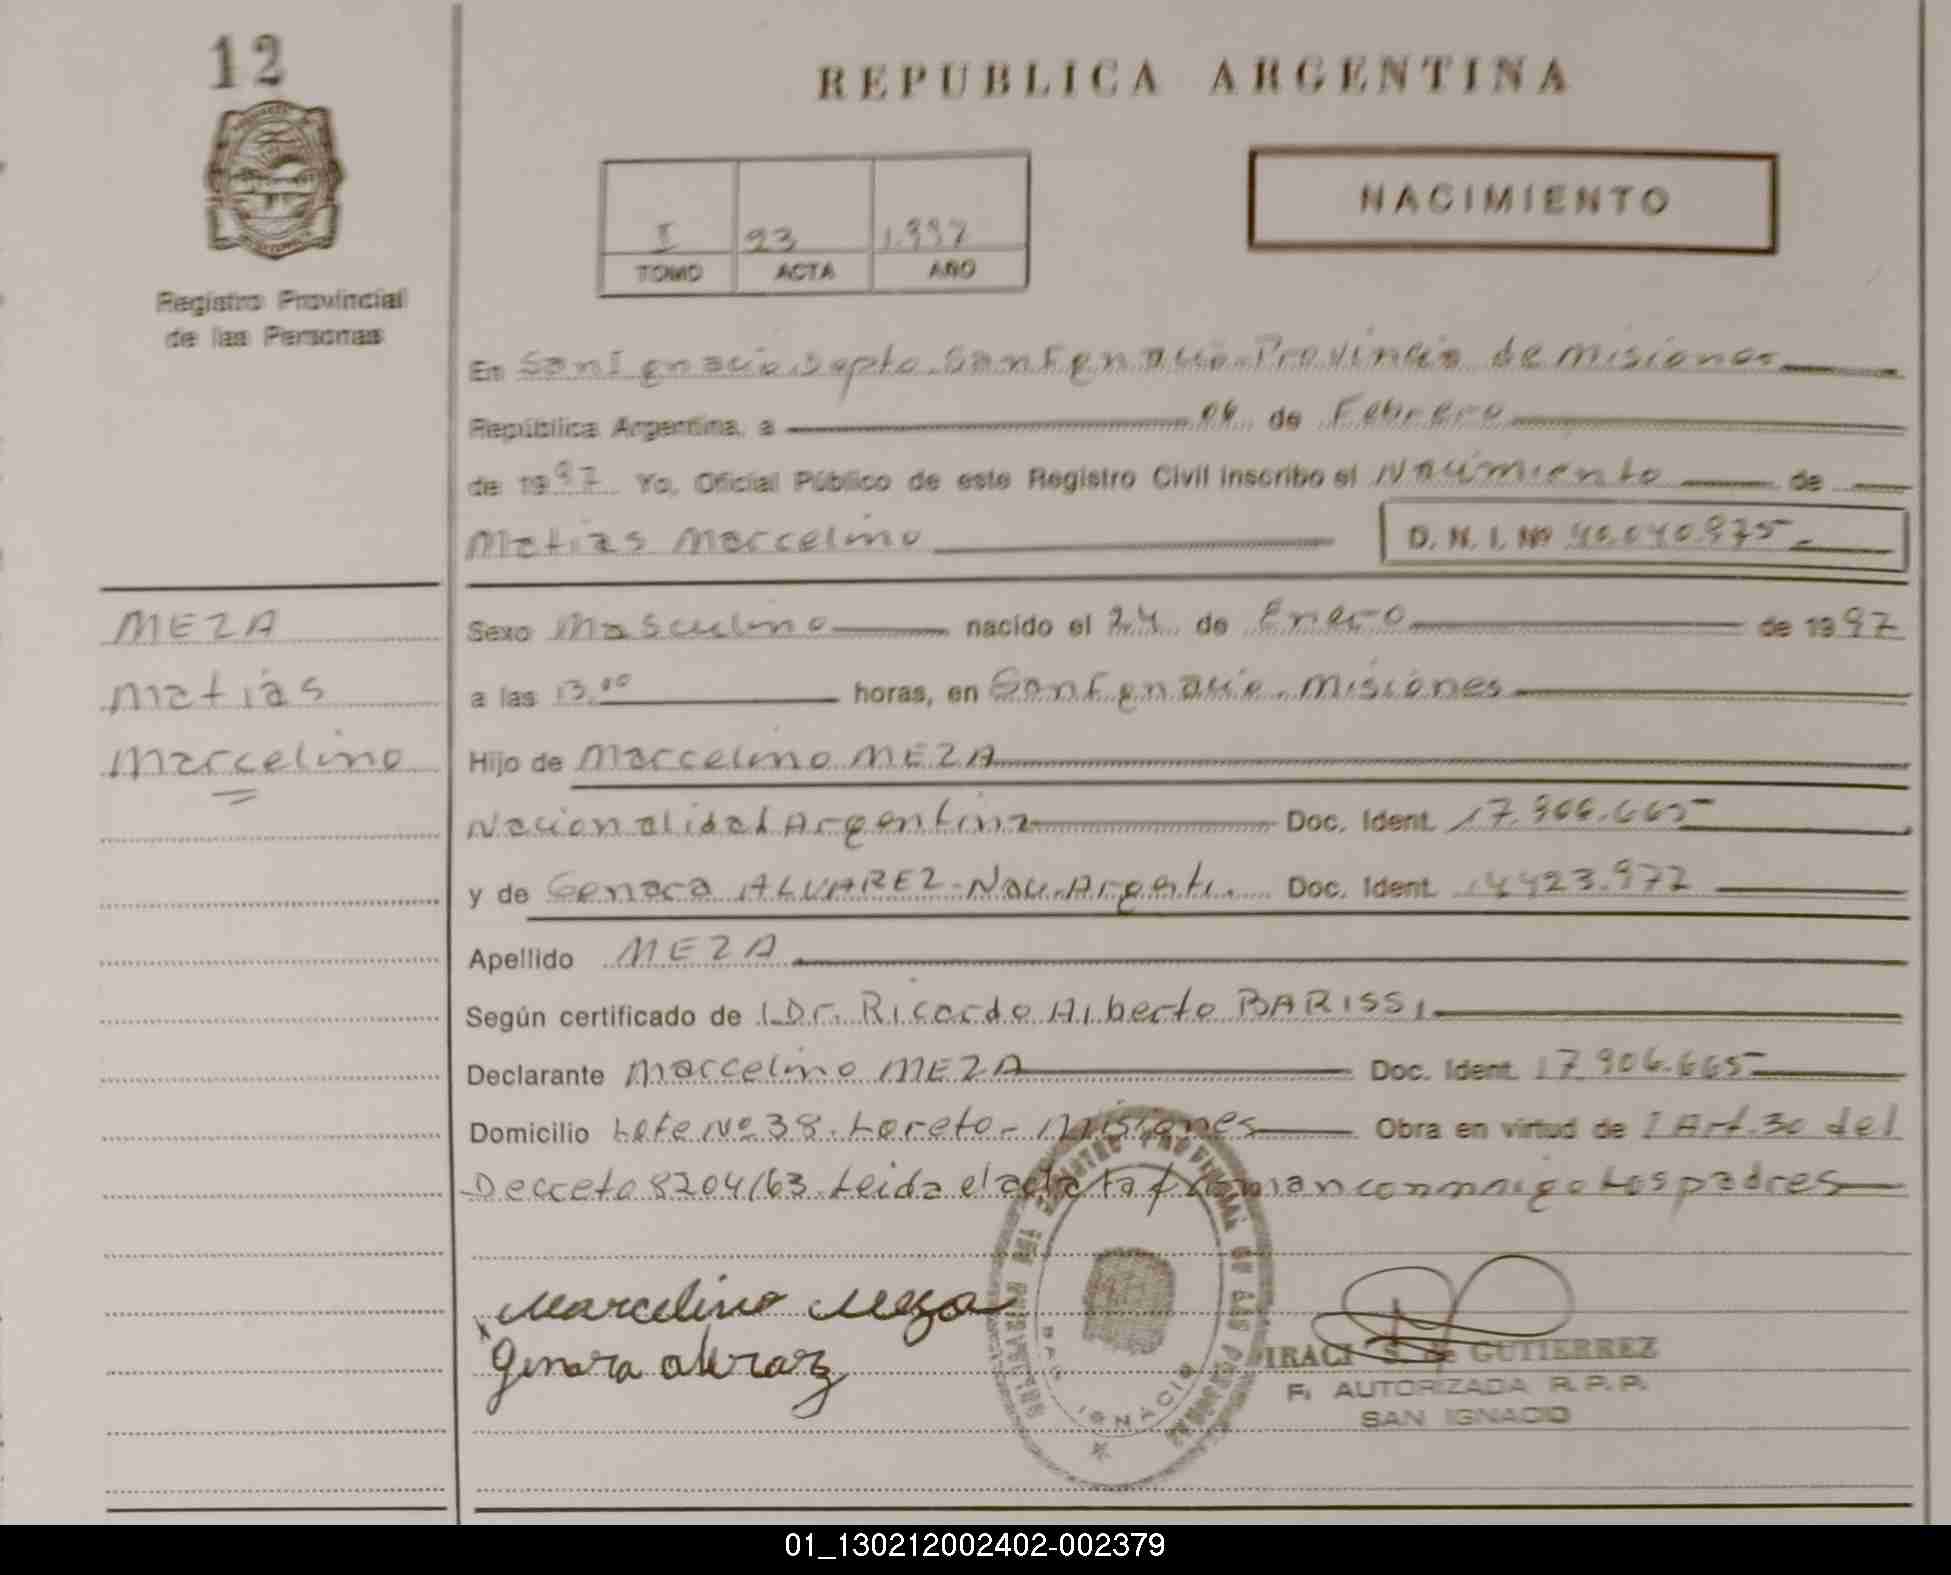 12
REPUBLICA ARGENTINA
NACIMIENTO
I 23 1.997
TOMO ACTA AÑO
Registro Provincial
de las Personas
En San Ignacio Depto. San Ignacio Provincia de Misiones
República Argentina, a 06 de Febrero
de 1997 Yo, Oficial Público de este Registro Civil inscribo el Nacimiento de
Matias Marcelino D. N. I. Nº 40.040.975
MEZA
Matias
Marcelino
Sexo Masculino nacido el 24 de Enero de 1997
a las 13.00 horas, en San Ignacio. Misiones
Hijo de Marcelino MEZA
Nacionalidad Argentina Doc. Ident. 17.906.665
y de Genara ALVAREZ - Nac. Argenti. Doc. Ident. 14423.972
Apellido MEZA
Según certificado de l Dr. Ricardo Alberto BARISSI
Declarante Marcelino MEZA Doc. Ident. 17.906.665
Domicilio Lote Nº 38. Loreto - Misiones Obra en virtud de l Art. 30 del
Decreto 8204/63. Leida el acta firman conmigo Los padres
Marcelino Meza
Genara
REGISTRO PROVINCIAL DE LAS PERSONAS
IGNACIO
IRACI S. de GUTIERREZ
F. AUTORIZADA R.P.P.
SAN IGNACIO
01_130212002402-002379